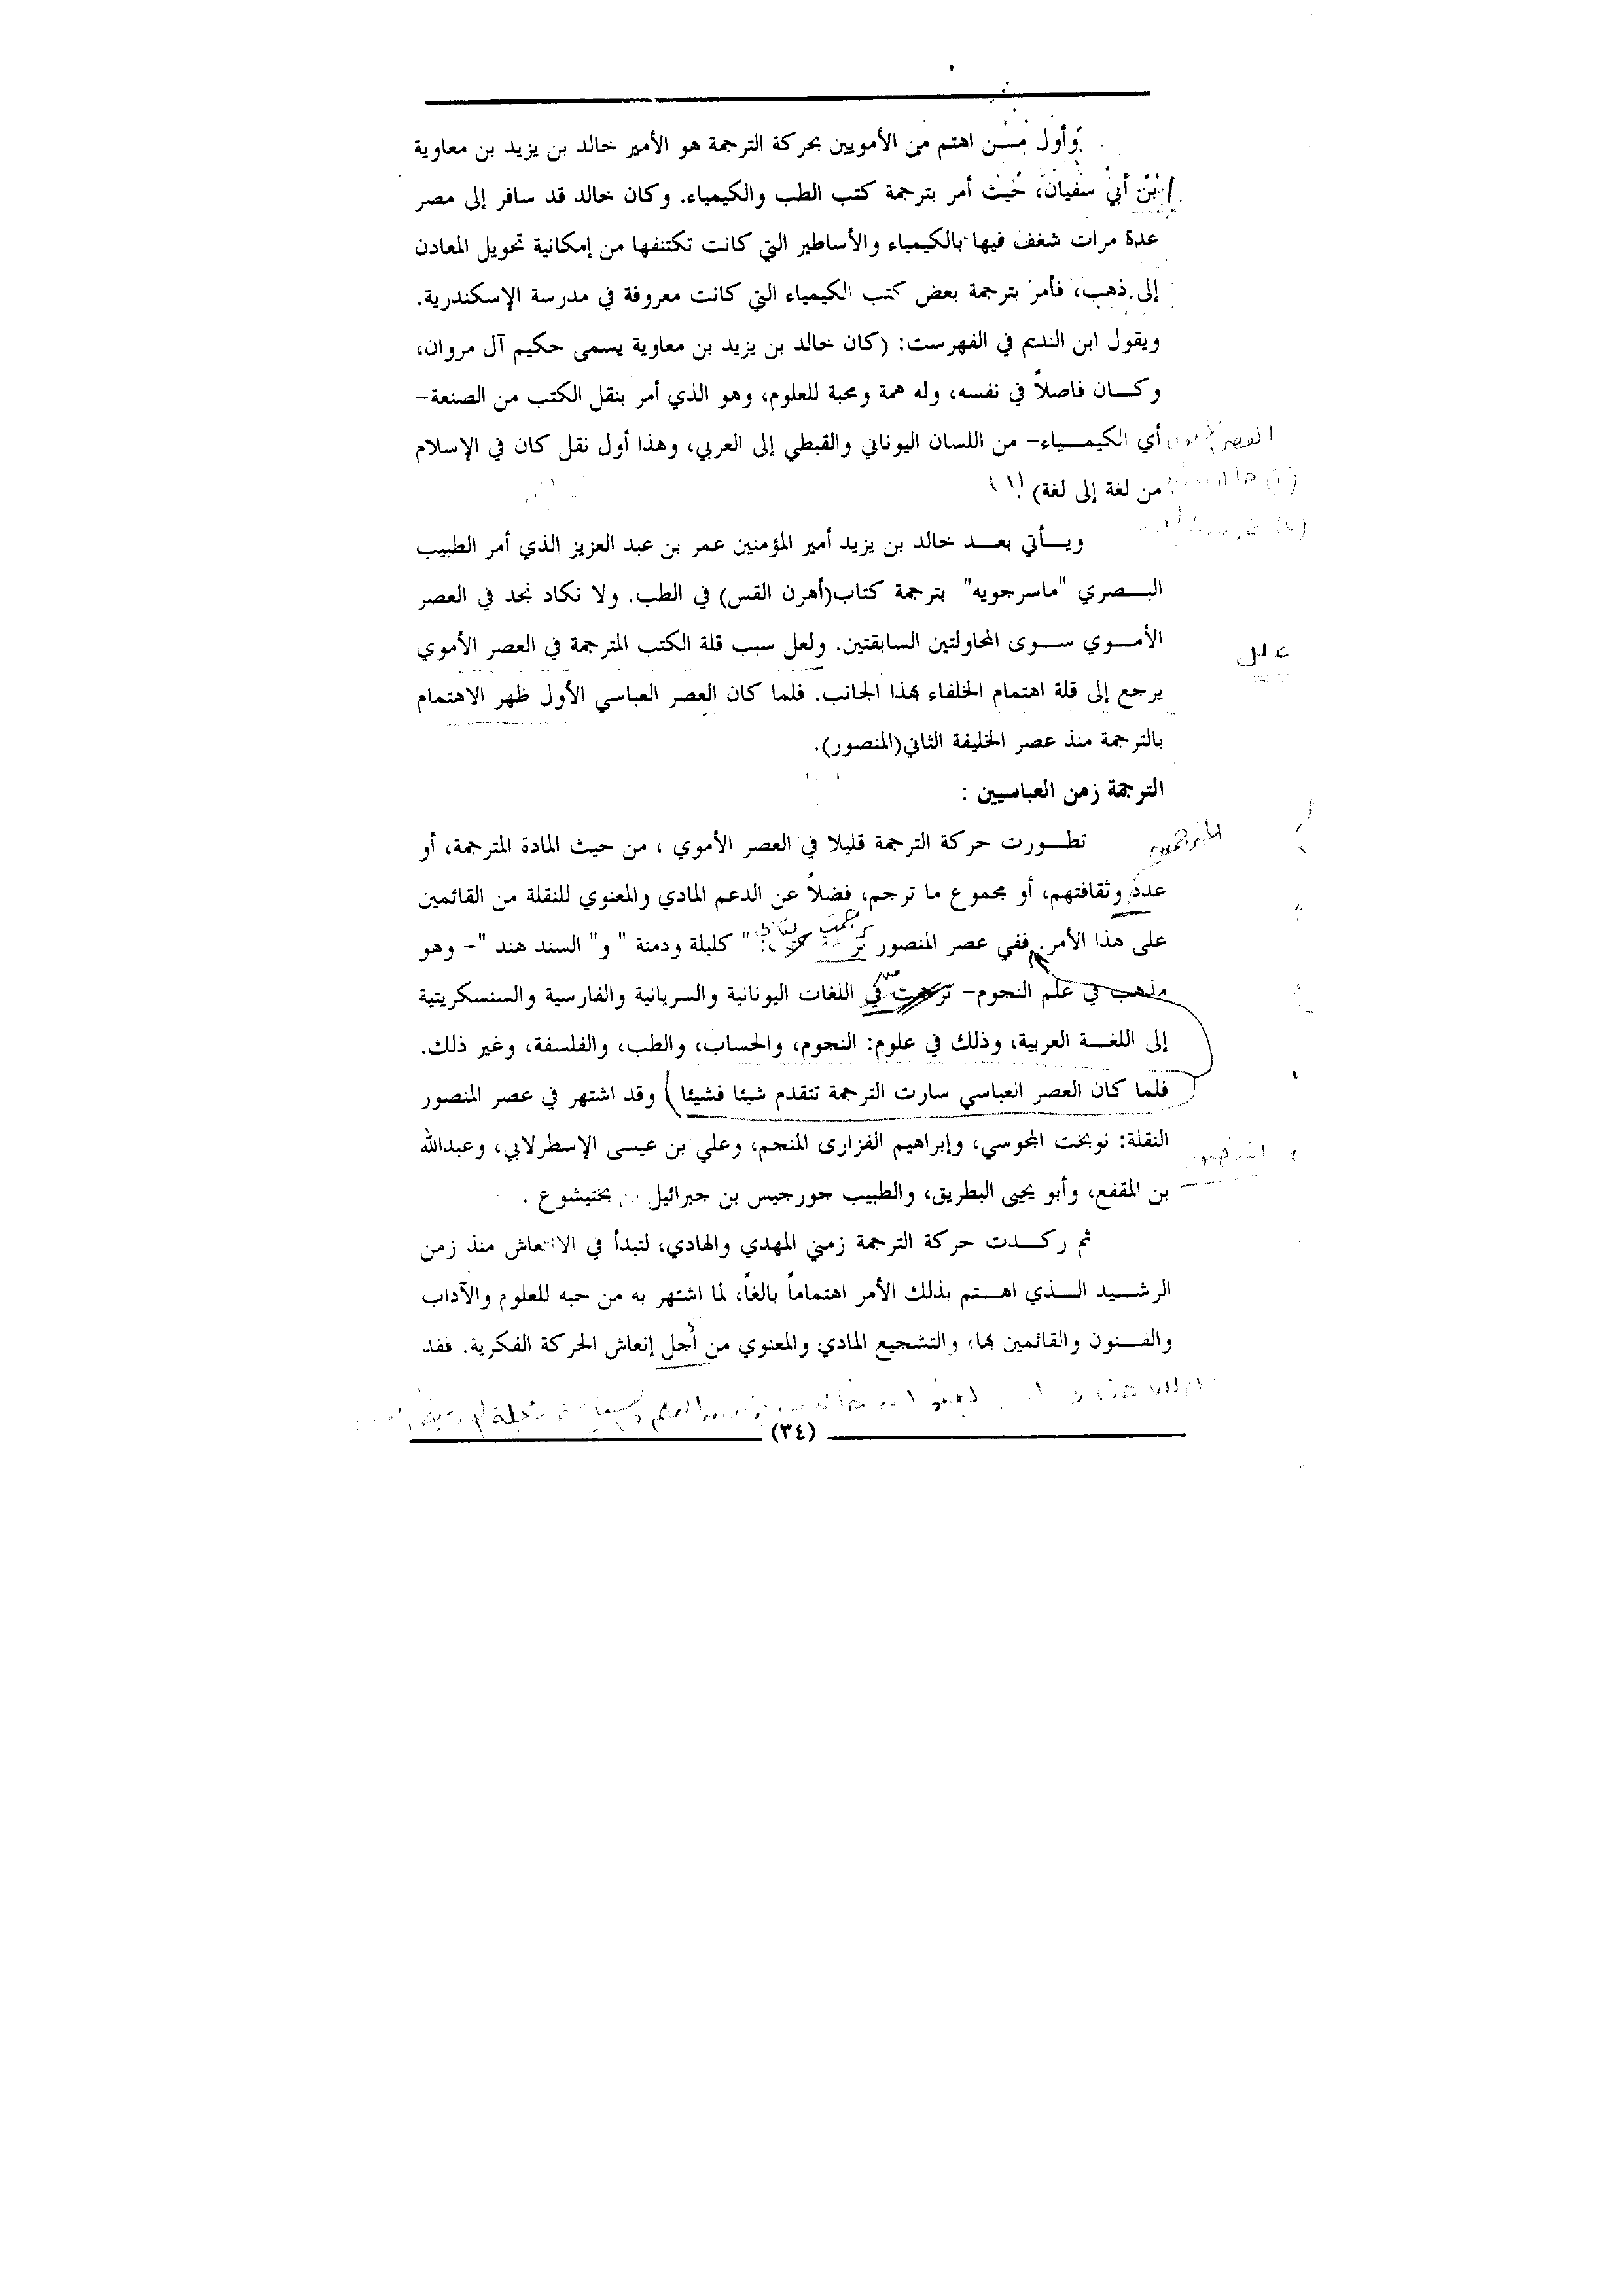 وأول من اهتم من الأمويين بحركة الترجمة هو الأمير خالد بن يزيد بن معاوية
بن أبي سفيان، حيث أمر بترجمة كتب الطب والكيمياء. وكان خالد قد سافر إلى مصر
عدة مرات شغف فيها بالكيمياء والأساطير التي كانت تكتنفها من إمكانية تحويل المعادن
إلى ذهب، فأمر بترجمة بعض كتب الكيمياء التي كانت معروفة في مدرسة الإسكندرية.
ويقول ابن النديم في الفهرست: (كان خالد بن يزيد بن معاوية يسمى حكيم آل مروان،
وكـــان فاصلاً في نفسه، وله همة ومحبة للعلوم، وهو الذي أمر بنقل الكتب من الصنعة–
أي الكيمـــياء– من اللسان اليوناني والقبطي إلى العربي، وهذا أول نقل كان في الإسلام
العصر
من لغة إلى لغة) (١)
ويـــأتي بعـــد خالد بن يزيد أمير المؤمنين عمر بن عبد العزيز الذي أمر الطبيب
البـــصري "ماسرجويه" بترجمة كتاب(أهرن القس) في الطب. ولا نكاد نجد في العصر
الأمـــوي ســـوى المحاولتين السابقتين. ولعل سبب قلة الكتب المترجمة في العصر الأموي
علل
يرجع إلى قلة اهتمام الخلفاء بهذا الجانب. فلما كان العصر العباسي الأول ظهر الاهتمام
بالترجمة منذ عصر الخليفة الثاني(المنصور).
الترجمة زمن العباسيين :
تطـــورت حركة الترجمة قليلا في العصر الأموي ، من حيث المادة المترجمة، أو
المترجمين
عدد وثقافتهم، أو مجموع ما ترجم، فضلاً عن الدعم المادي والمعنوي للنقلة من القائمين
على هذا الأمر. ففي عصر المنصور ترجمت كتابي " كليلة ودمنة " و" السند هند "– وهو
من
مذهب في علم النجوم– ترجمت في اللغات اليونانية والسريانية والفارسية والسنسكريتية
إلى اللغـــة العربية، وذلك في علوم: النجوم، والحساب، والطب، والفلسفة، وغير ذلك.
فلما كان العصر العباسي سارت الترجمة تتقدم شيئا فشيئا) وقد اشتهر في عصر المنصور
النقلة: نوبخت المجوسي، وإبراهيم الفزارى المنجم، وعلي بن عيسى الإسطرلابي، وعبدالله
بن المقفع، وأبو يحيى البطريق، والطبيب جورجيس بن جبرائيل بن بختيشوع .
ثم ركـــدت حركة الترجمة زمني المهدي والهادي، لتبدأ في الانتعاش منذ زمن
الرشـــيد الـــذي اهـــتم بذلك الأمر اهتماماً بالغاً، لما اشتهر به من حبه للعلوم والآداب
والفـــنون والقائمين بها، والتشجيع المادي والمعنوي من أجل إنعاش الحركة الفكرية. فقد
(٣٤)